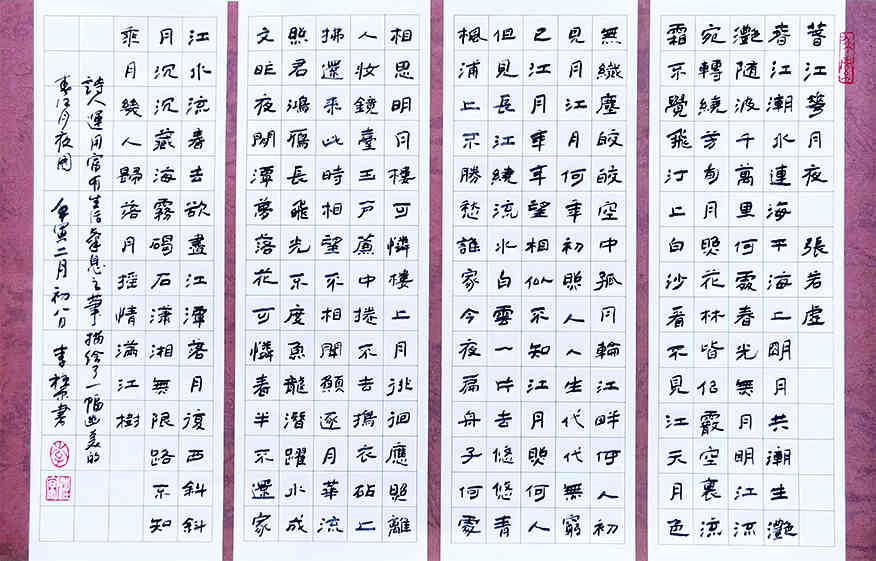 春江花月夜 張若虛
春江潮水連海平海上明月共潮生灧
灧隨波千萬里何處春光無月明江流
宛轉繞芳甸月照花林皆似霰空裏流
霜不覺飛汀上白沙看不見江天月色
無纖塵皎皎空中孤月輪江畔何人初
見月江月何年初照人人生代代無窮
已江月年年望相似不知江月照何人
但見長江繞流水白雲一片去悠悠青
楓浦上不勝愁誰家今夜扁舟子何處
相思明月樓可憐樓上月徘徊應照離
人妝鏡臺玉戶簾中捲不去搗衣砧上
拂還來此時相望不相聞願逐月華流
照君鴻雁長飛光不度魚龍潛躍水成
文昨夜閒潭夢落花可憐春半不還家
江水流春去欲盡江潭落月復西斜斜
月沉沉藏海霧碣石瀟湘無限路不知
乘月幾人歸落月搖情滿江樹
詩人運用富有生活氣息之筆描繪了一幅幽美的
春江月夜圖 壬寅二月初八日 李書